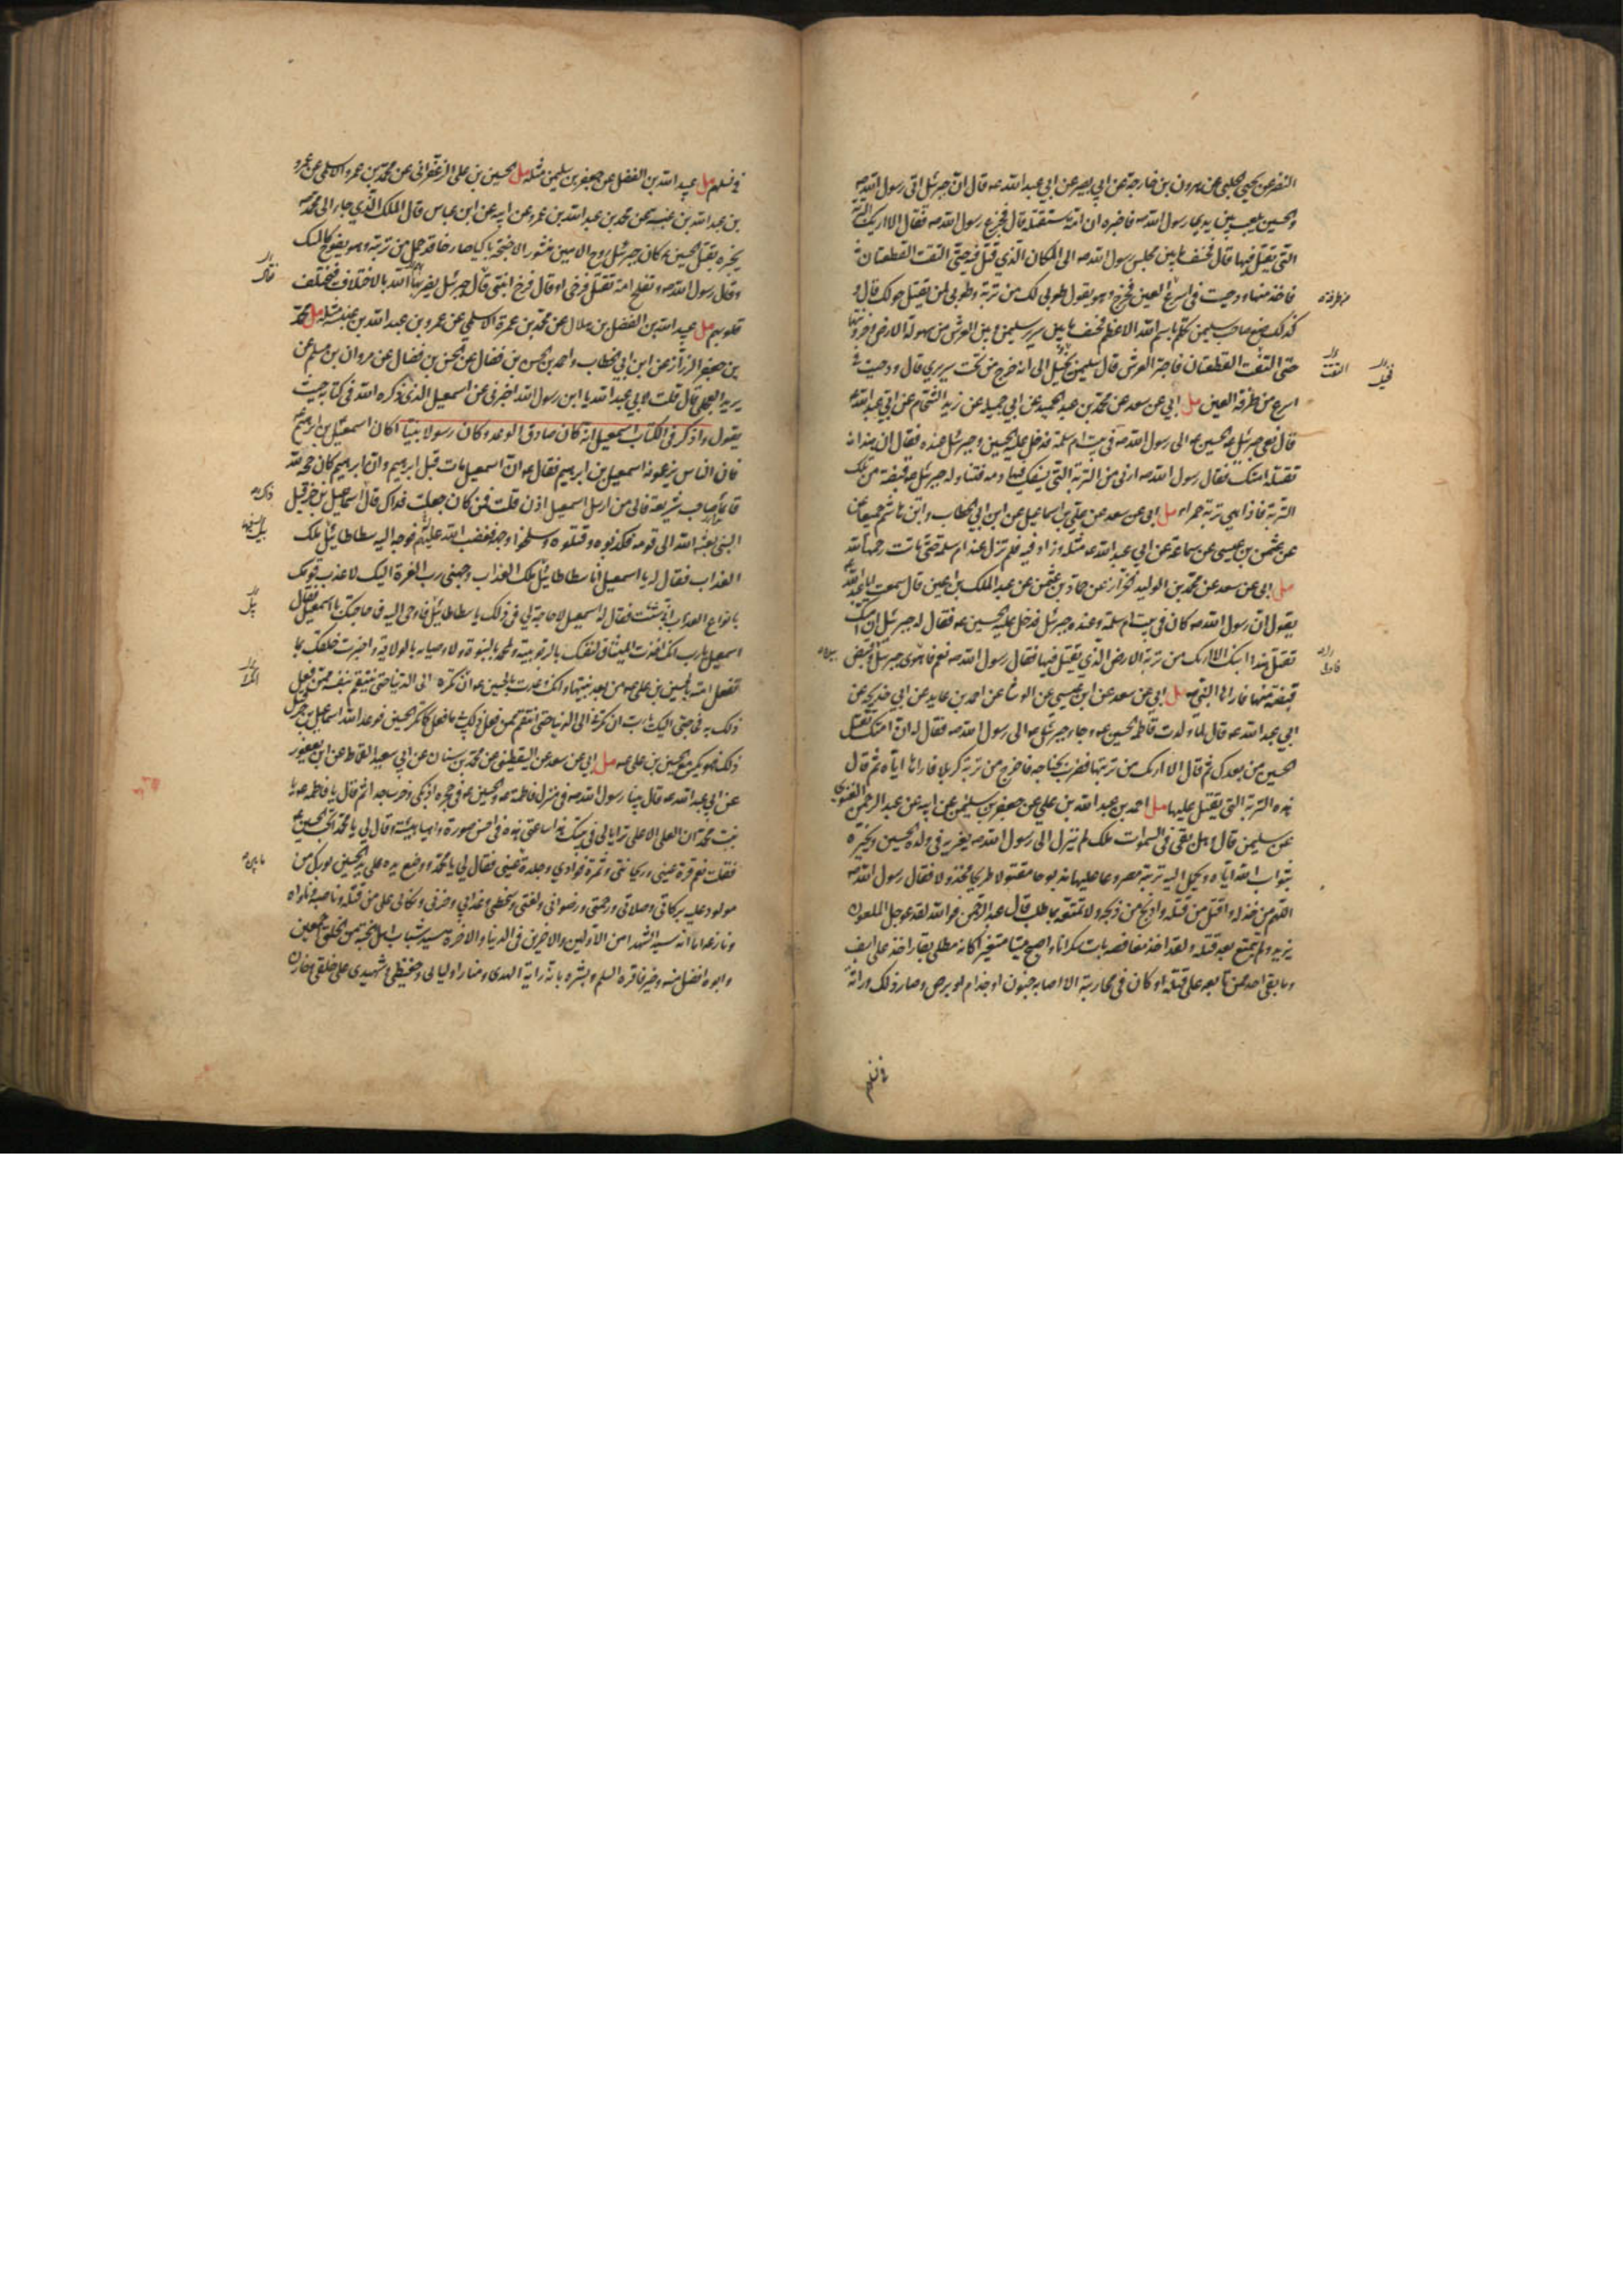 النضر عن يحيى الحلبي عن هرون بن خارجة عن ابي بصير عن ابي عبد الله ع قال ان جبرئيل اتى رسول الله ص
والحسين يلعب بين يدي رسول الله ص فاخبره ان امته ستقتله قال فجزع رسول الله ص فقال الا اريك التربة
التي يقتل فيها قال فخسف ما بين مجلس رسول الله ص الى المكان الذي قتل فيه حتى التقت القطعتان
فاخذ منها ودحيت في اسرع العين فخرج وهو يقول طوبى لك من تربة وطوبى لمن يقتل حولك قال و
كذلك صنع صاحب سليمن تكلم باسم الله الاعظم فخسف ما بين سرير سليمن وبين العرش من سهولة الارض وحزونتها
حتى التقت القطعتان فاجتر العرش قال سليمن يخيل الى انه خرج من تحت سريري قال ودحيت في
اسرع من طرفة العين مل ابي عن سعد عن محمد بن عبد الحميد عن ابي جميلة عن زيد الشحام عن ابي عبد الله ع
قال نعى جبرئيل ع الحسين ع الى رسول الله ص في بيت ام سلمة فدخل عليه الحسين وجبرئيل عنده فقال ان هذا
تقتله امتك فقال رسول الله ص ارني من التربة التي يسفك فيها دمه فتناول جبرئيل ع قبضة من تلك
التربة فاذا هي تربة حمراء مل ابي عن سعد عن علي بن اسماعيل عن ابن ابي الخطاب وابن هاشم جميعا عن
عن عثمن بن عيسى عن سماعة عن ابي عبد الله ع مثله وزاد فيه فلم تزل عند ام سلمة حتى ماتت رحمها الله
مل ابي عن سعد عن محمد بن الوليد الخزاز عن حماد بن عثمن عن عبد الملك بن اعين قال سمعت ابا عبد الله ع
يقول ان رسول الله ص كان في بيت ام سلمة وعنده جبرئيل فدخل عليه الحسين ع فقال له جبرئيل ان امتك
تقتل هذا ابنك الا اريك من تربة الارض الذي يقتل فيها فقال رسول الله ص نعم فاهوى جبرئيل وقبض
قبضة منها فاراها النبي ص مل ابي عن سعد عن ابن عيسى عن الوشا عن احمد بن عايذ عن ابي خديجة عن
ابي عبد الله ع قال لما ولدت فاطمة الحسين ع جاء جبرئيل ع الى رسول الله ص فقال له ان امتك تقتل
الحسين من بعدك ثم قال الا اريك من تربتها فضرب بجناحه فاخرج من تربة كربلا فاراها اياه ثم قال
هذه التربة التي يقتل عليها مل احمد بن عبد الله بن علي عن جعفر بن سليمن عن ابيه عن عبد الرحمن الغنوي
عن سليمن قال وهل بقي في السموات ملك لم ينزل الى رسول الله ص يعزيه في ولده الحسين ويخبره
بثواب الله اياه ويحمل اليه تربة مصروعا عليها مذبوحا مقتولا طريحا مخذولا فقال رسول الله ص
اللهم من خذله واقتل من قتله واذبح من ذبحه ولا تمتعه بما طلب قال عبد الرحمن فوالله لقد عوجل الملعون
يزيد ولم يتمتع بعد قتله ولقد اخذ مغافصة بات سكرانا واصبح ميتا متغيرا كانه مطلي بقار اخذ على اسف
وما بقي احد ممن تابعه على قتله او كان في محاربته الا اصابه جنون او جذام او برص وصار ذلك وراثة
في نسلهم
في نسلهم مل عبيد الله بن الفضل عن جعفر بن سليمن مثله مل الحسين بن علي الزعفراني عن محمد بن عمرو الاسلمي عن عمرو
بن عبد الله بن عنبسة عن محمد بن عبد الله بن عمرو عن ابيه عن ابن عباس قال الملك الذي جاء الى محمد ص
يخبره بقتل الحسين ع كان جبرئيل روح الامين منشور الاجنحة باكيا صارخا قد حمل من تربته وهو يفوح كالمسك
وقال رسول الله ص وتفلح امة تقتل فرخي او قال فرخ ابنتي قال جبرئيل يضربها الله بالاختلاف فيختلف
قلوبهم مل عبيد الله بن الفضل بن هلال عن محمد بن عمرة الاسلمي عن عمرو بن عبد الله بن عنبسة مثله مل محمد
بن جعفر الرزاز عن ابن ابي الخطاب واحمد بن الحسن بن فضال عن الحسن بن فضال عن مروان بن مسلم عن
بريد العجلي قال قلت لابي عبد الله يا ابن رسول الله اخبرني عن اسمعيل الذي ذكره الله في كتابه حيث
يقول واذكر في الكتاب اسمعيل انه كان صادق الوعد وكان رسولا نبيا اكان اسمعيل بن ابرهيم ع
فان الناس يزعمون انه اسمعيل بن ابرهيم فقال ع ان اسمعيل مات قبل ابرهيم وان ابرهيم كان حجة لله
قائما صاحب شريعة فالى من ارسل اسمعيل اذن قلت فمن كان جعلت فداك قال اسماعيل بن حزقيل
النبي بعثه الله الى قومه فكذبوه وقتلوه وسلخوا وجهه فغضب الله عليهم فوجه اليه سطاطائيل ملك
العذاب فقال له يا اسمعيل انا سطاطائيل ملك العذاب وجهني رب العزة اليك لاعذب قومك
بانواع العذاب ان شئت فقال له اسمعيل لا حاجة لي في ذلك يا سطاطائيل فاوحى اليه فما حاجتك يا اسمعيل فقال
اسمعيل يا رب انك اخذت الميثاق لنفسك بالربوبية ولمحمد بالنبوة ولاوصيائه بالولاية واخبرت خلقك بما
تفعل امته بالحسين بن علي ع من بعد نبيها وانك وعدت الحسين ع ان تكره الى الدنيا حتى ينتقم بنفسه ممن فعل
ذلك به فحاجتي اليك يا رب ان تكرني الى الدنيا حتى انتقم ممن فعل ذلك بي ما فعل كما تكر الحسين فوعد الله اسماعيل بن حزقيل
ذلك فهو يكر مع الحسين بن علي ع مل ابي عن سعد عن اليقطيني عن محمد بن سنان عن ابي سعيد القماط عن ابن ابي يعفور
عن ابي عبد الله ع قال بينا رسول الله ص في منزل فاطمة ع والحسين ع في حجره اذ بكى وخر ساجدا ثم قال يا فاطمة ع يا
بنت محمد ان العلي الاعلى ترايا لي في بيتك هذا ساعتي هذه في احسن صورة واهيا هيئة وقال لي يا محمد اتحب الحسين ع
فقلت نعم قرة عيني وريحانتي وثمرة فؤادي وجلدة عيني فقال لي يا محمد ووضع يده على راس الحسين بورك من
مولود عليه بركاتي وصلاتي ورحمتي ورضواني ولعنتي وسخطي وعذابي وخزيي ونكالي على من قتله وناصبه وناواه
ونازعه اما انه سيد الشهدا من الاولين والاخرين في الدنيا والاخرة وسيد شباب اهل الجنة من الخلق اجمعين
وابوه افضل منه وخير فاقره السلم وبشره بانه راية الهدى ومنار اوليائي وحفيظي وشهيدي على خلقي وخازن